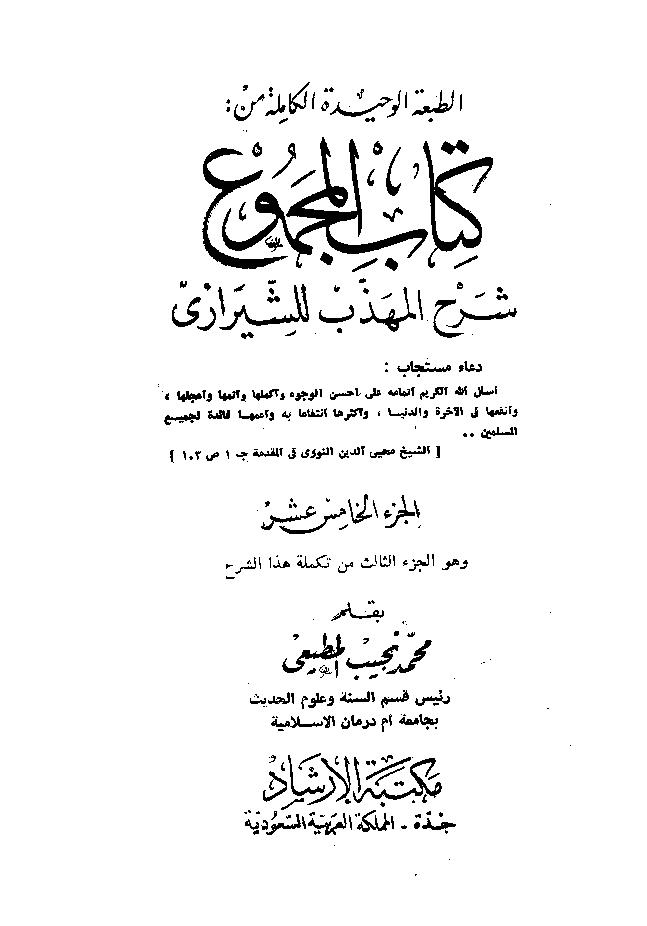 الطبعة الوحيدة الكاملة من :
كتاب المجموع
شرح المهذب للشيرازى
دعاء مستجاب :
أسأل الله الكريم اتمامه على أحسن الوجوه وأكملها وأتمها وأعجلها ،
وأنفعها فى الآخرة والدنيا ، وأكثرها انتفاعا به وأعمها فائدة لجميع
المسلمين ..
[ الشيخ محيى الدين النووى فى المقدمة جـ ١ ص ١٠٢ ]
الجزء الخامس عشر
وهو الجزء الثالث من تكملة هذا الشرح
بقلم
محمد نجيب المطيعى
رئيس قسم السنة وعلوم الحديث
بجامعة أم درمان الاسلامية
مكتبة الإرشاد
جدة - المملكة العربية السعودية